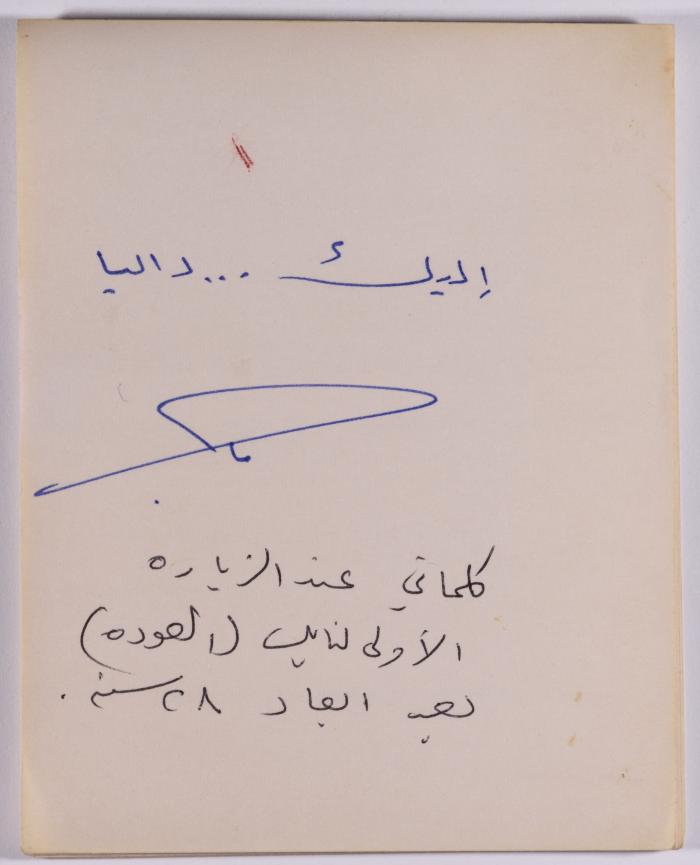 إليك ... داليا
كلماتي عند الزياره
الأولى لنابلس (العوده)
بعد ابعاد ٢٨ سنه.